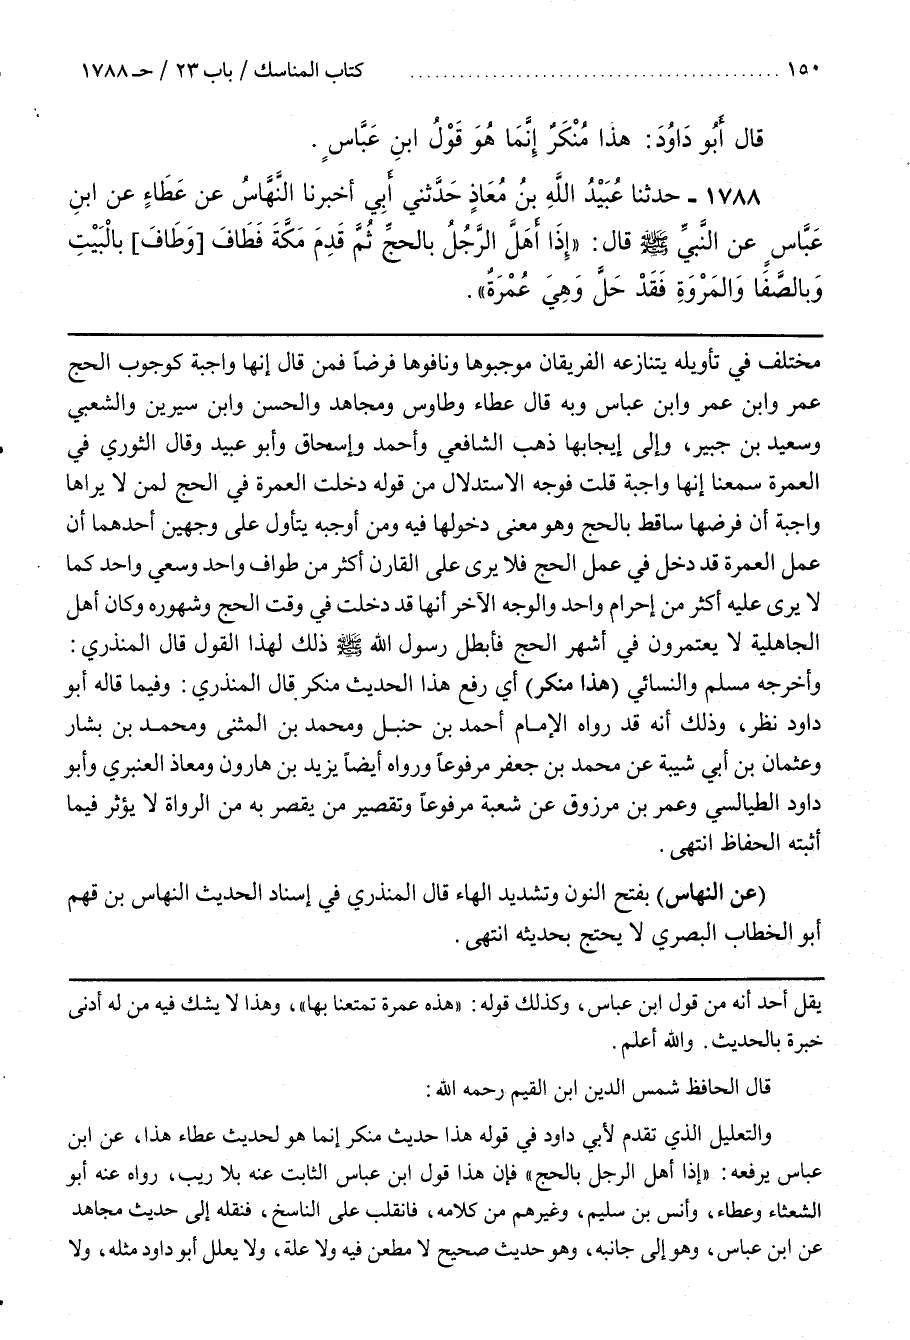 ١٥٠ ............................................ كتاب المناسك / باب ٢٣ / حـ ١٧٨٨
قال أَبُو دَاوُدَ: هذا مُنْكَرٌ إنَّمَا هُوَ قَوْلُ ابنِ عَبَّاسٍ.
١٧٨٨ - حدثنا عُبَيْدُ اللَّهِ بنُ مُعَاذٍ حَدَّثني أَبِي أخبرنا النَّهَّاسُ عن عَطَاءٍ عن ابنِ
عَبَّاسٍ عن النَّبيِّ ﷺ قال: «إذَا أهَلَّ الرَّجُلُ بالحجِّ ثُمَّ قَدِمَ مَكَّةَ فَطَافَ [وَطَافَ] بالْبَيْتِ
وَبالصَّفَا وَالمَرْوَةِ فَقَدْ حَلَّ وَهِيَ عُمْرَةٌ».
مختلف في تأويله يتنازعه الفريقان موجبوها ونافوها فرضاً فمن قال إنها واجبة كوجوب الحج
عمر وابن عمر وابن عباس وبه قال عطاء وطاوس ومجاهد والحسن وابن سيرين والشعبي
وسعيد بن جبير، وإلى إيجابها ذهب الشافعي وأحمد وإسحاق وأبو عبيد وقال الثوري في
العمرة سمعنا إنها واجبة قلت فوجه الاستدلال من قوله دخلت العمرة في الحج لمن لا يراها
واجبة أن فرضها ساقط بالحج وهو معنى دخولها فيه ومن أوجبه يتأول على وجهين أحدهما أن
عمل العمرة قد دخل في عمل الحج فلا يرى على القارن أكثر من طواف واحد وسعي واحد كما
لا يرى عليه أكثر من إحرام واحد والوجه الآخر أنها قد دخلت في وقت الحج وشهوره وكان أهل
الجاهلية لا يعتمرون في أشهر الحج فأبطل رسول الله ﷺ ذلك لهذا القول قال المنذري:
وأخرجه مسلم والنسائي (هذا منكر) أي رفع هذا الحديث منكر قال المنذري: وفيما قاله أبو
داود نظر، وذلك أنه قد رواه الإمام أحمد بن حنبل ومحمد بن المثنى ومحمد بن بشار
وعثمان بن أبي شيبة عن محمد بن جعفر مرفوعاً ورواه أيضاً يزيد بن هارون ومعاذ العنبري وأبو
داود الطيالسي وعمر بن مرزوق عن شعبة مرفوعاً وتقصير من يقصر به من الرواة لا يؤثر فيما
أثبته الحفاظ انتهى.
(عن النهاس) بفتح النون وتشديد الهاء قال المنذري في إسناد الحديث النهاس بن قهم
أبو الخطاب البصري لا يحتج بحديثه انتهى.
يقل أحد أنه من قول ابن عباس، وكذلك قوله: «هذه عمرة تمتعنا بها»، وهذا لا يشك فيه من له أدنى
خبرة بالحديث. والله أعلم.
قال الحافظ شمس الدين ابن القيم رحمه الله:
والتعليل الذي تقدم لأبي داود في قوله هذا حديث منكر إنما هو لحديث عطاء هذا، عن ابن
عباس يرفعه: «إذا أهل الرجل بالحج» فإن هذا قول ابن عباس الثابت عنه بلا ريب، رواه عنه أبو
الشعثاء وعطاء، وأنس بن سليم، وغيرهم من كلامه، فانقلب على الناسخ، فنقله إلى حديث مجاهد
عن ابن عباس، وهو إلى جانبه، وهو حديث صحيح لا مطعن فيه ولا علة، ولا يعلل أبو داود مثله، ولا